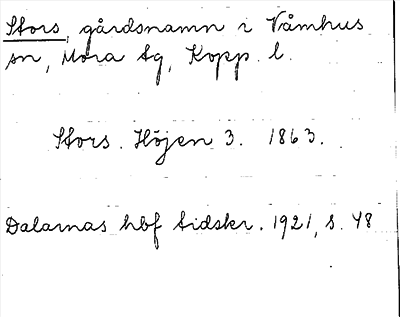 Stors, gårdsnamn i Våmhus
sn, Mora tg, Kopp. l.
Stors. Höjen 3. 1863.
Dalarnas hbf tidskr. 1921, s. 48